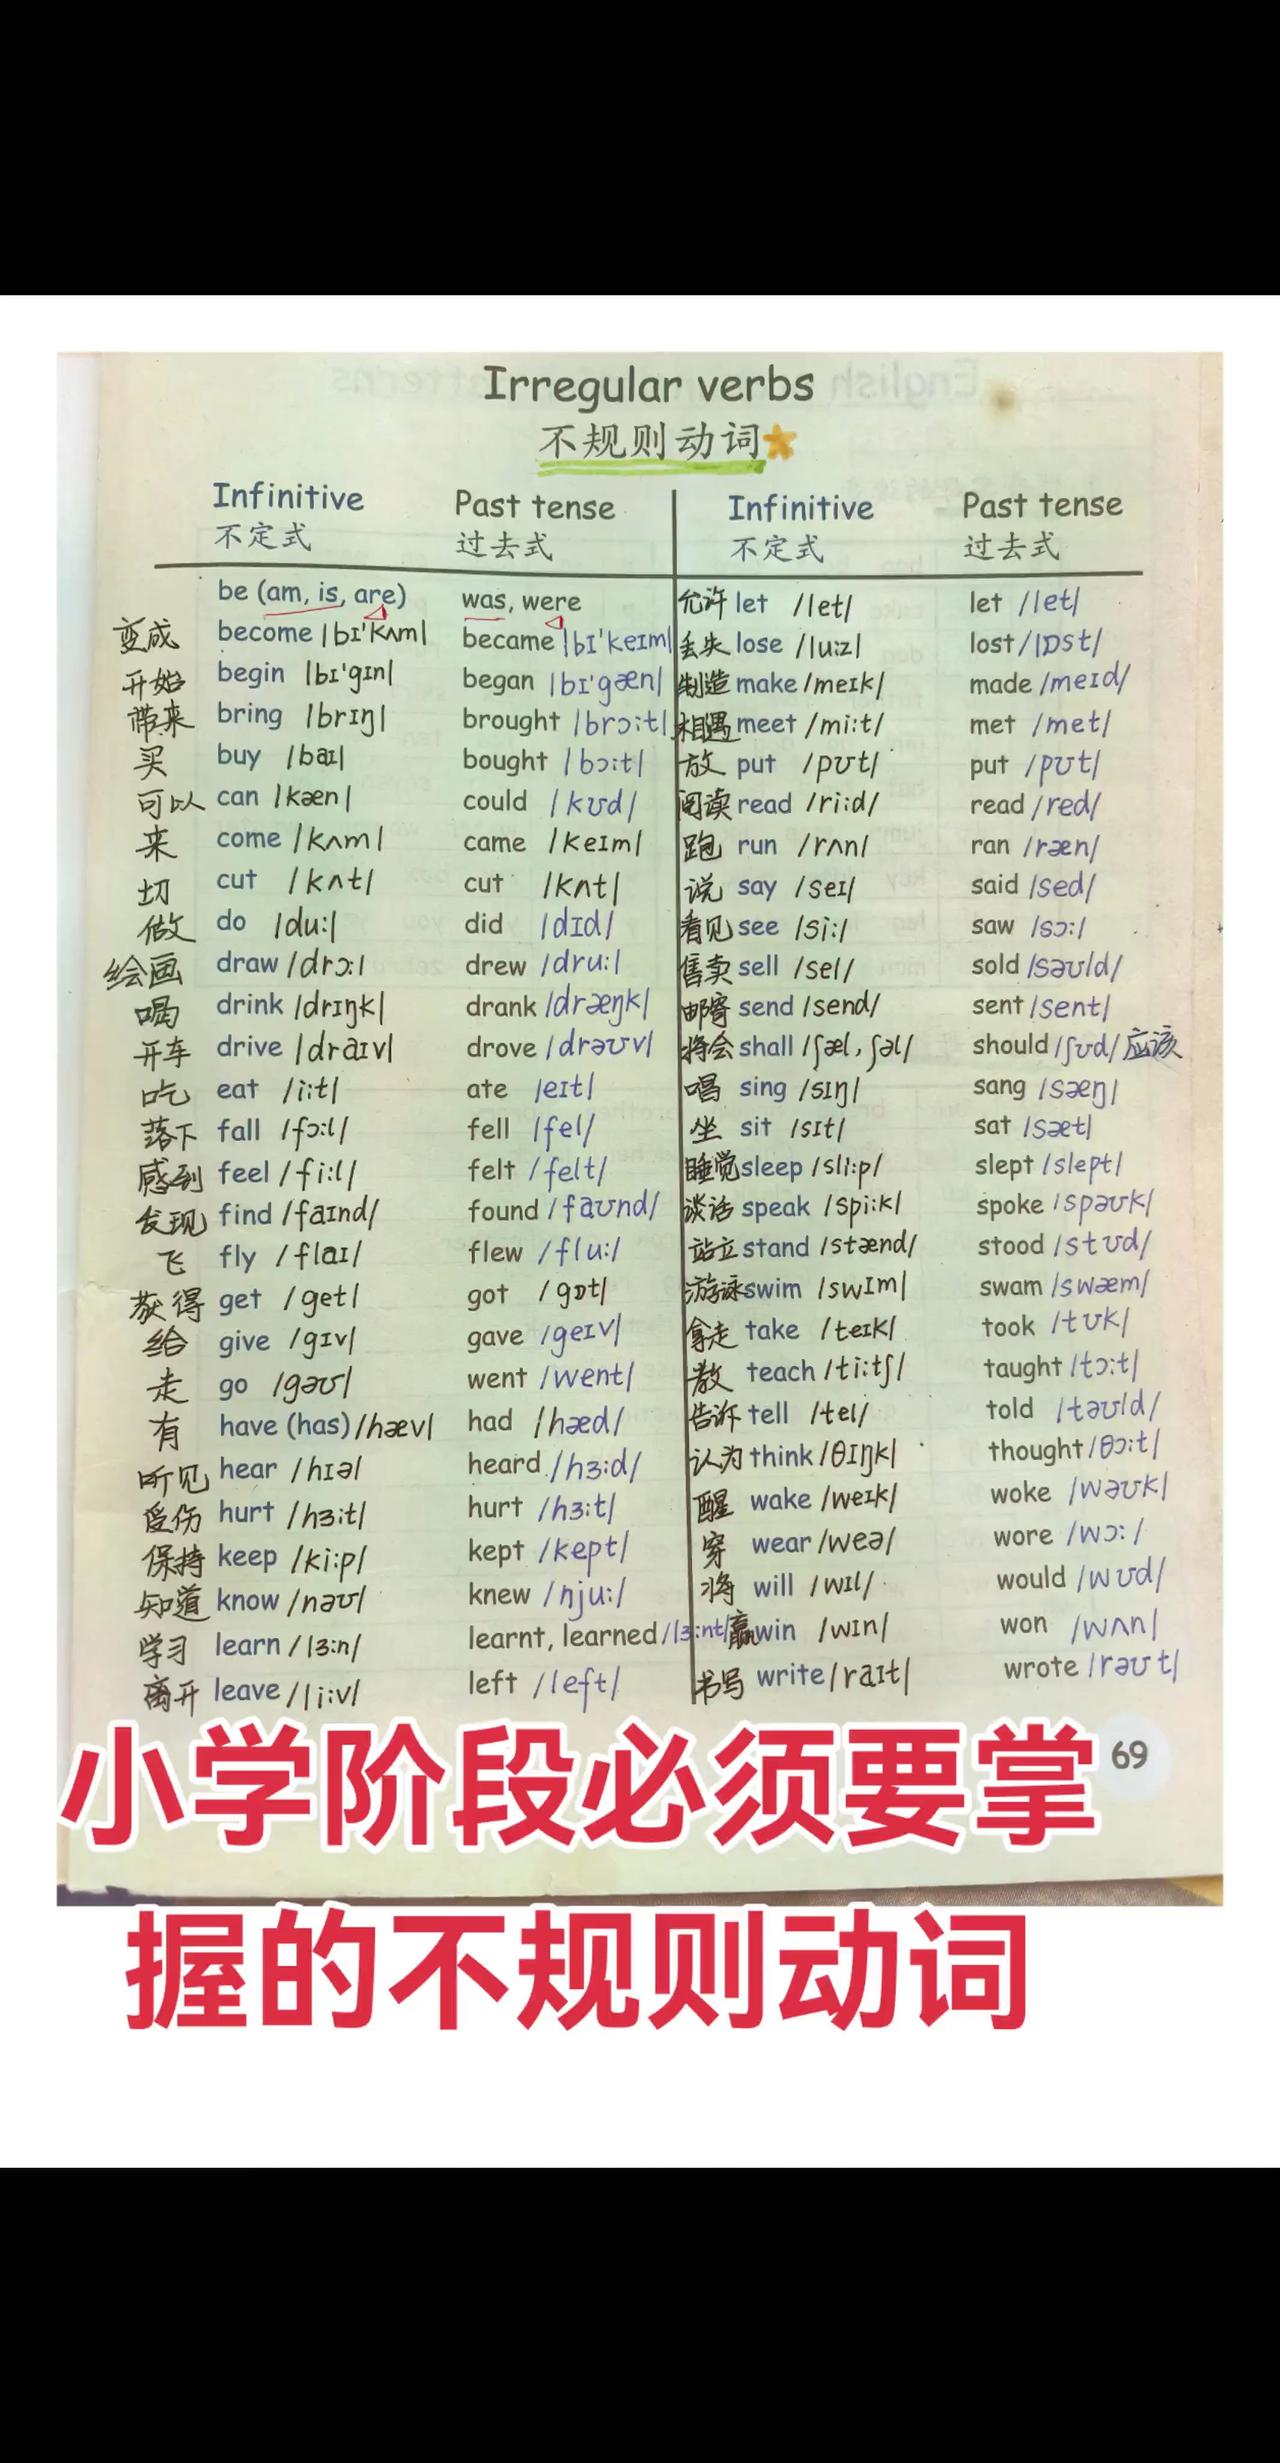 Irregular verbs
不规则动词
Infinitive Past tense Infinitive Past tense
不定式 过去式 不定式 过去式
be (am, is, are) was, were
变成 become /bɪ'kʌm/ became /bɪ'keɪm/
开始 begin /bɪ'gɪn/ began /bɪ'gæn/
带来 bring /brɪŋ/ brought /brɔ:t/
买 buy /baɪ/ bought /bɔ:t/
可以 can /kæn/ could /kʊd/
来 come /kʌm/ came /keɪm/
切 cut /kʌt/ cut /kʌt/
做 do /du:/ did /dɪd/
绘画 draw /drɔ:/ drew /dru:/
喝 drink /drɪŋk/ drank /dræŋk/
开车 drive /draɪv/ drove /drəʊv/
吃 eat /i:t/ ate /eɪt/
落下 fall /fɔ:l/ fell /fel/
感到 feel /fi:l/ felt /felt/
发现 find /faɪnd/ found /faʊnd/
飞 fly /flaɪ/ flew /flu:/
获得 get /get/ got /gɒt/
给 give /gɪv/ gave /geɪv/
走 go /gəʊ/ went /went/
有 have (has) /hæv/ had /hæd/
听见 hear /hɪə/ heard /hɜ:d/
受伤 hurt /hɜ:t/ hurt /hɜ:t/
保持 keep /ki:p/ kept /kept/
知道 know /nəʊ/ knew /nju:/
学习 learn /lɜ:n/ learnt, learned /lɜ:nt/
离开 leave /li:v/ left /left/
允许 let /let/ let /let/
丢失 lose /lu:z/ lost /lɒst/
制造 make /meɪk/ made /meɪd/
相遇 meet /mi:t/ met /met/
放 put /pʊt/ put /pʊt/
阅读 read /ri:d/ read /red/
跑 run /rʌn/ ran /ræn/
说 say /seɪ/ said /sed/
看见 see /si:/ saw /sɔ:/
售卖 sell /sel/ sold /səʊld/
邮寄 send /send/ sent /sent/
将会 shall /ʃæl, ʃəl/ should /ʃʊd/ 应该
唱 sing /sɪŋ/ sang /sæŋ/
坐 sit /sɪt/ sat /sæt/
睡觉 sleep /sli:p/ slept /slept/
谈话 speak /spi:k/ spoke /spəʊk/
站立 stand /stænd/ stood /stʊd/
游泳 swim /swɪm/ swam /swæm/
拿走 take /teɪk/ took /tʊk/
教 teach /ti:tʃ/ taught /tɔ:t/
告诉 tell /tel/ told /təʊld/
认为 think /θɪŋk/ thought /θɔ:t/
醒 wake /weɪk/ woke /wəʊk/
穿 wear /weə/ wore /wɔ:/
将 will /wɪl/ would /wʊd/
赢 win /wɪn/ won /wʌn/
书写 write /raɪt/ wrote /rəʊt/
69
小学阶段必须要掌
握的不规则动词